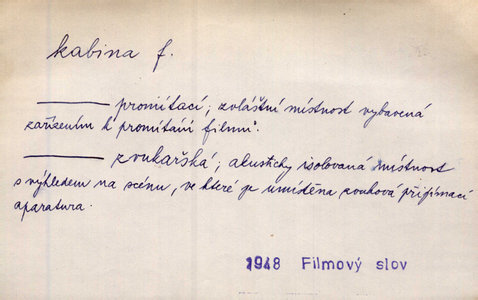 kabina f.
——— promítací; zvláštní místnost vybavená
zařízením k promítání filmů.
——— zvukařská; akusticky isolovaná místnost
s výhledem na scénu, ve které je umístěna zvuková přijímací
aparatura.
1948 Filmový slov